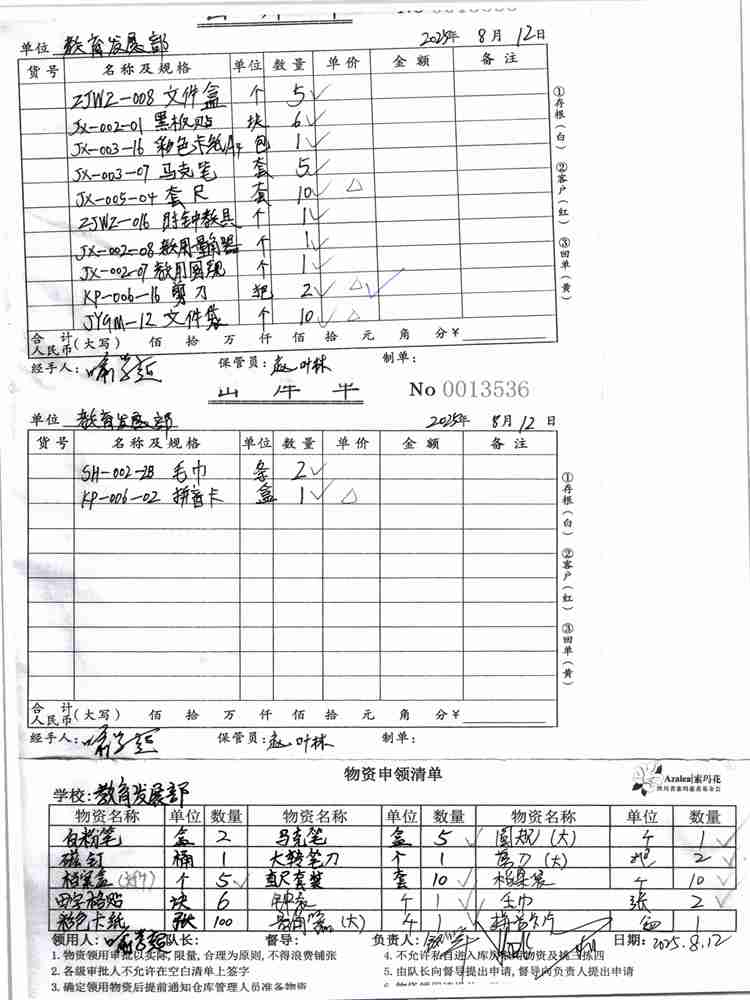 No 0013535
单位 教育发展部 2025年 8月 12日
货号 名称及规格 单位 数量 单价 金额 备注
ZJWZ-008 文件盒 个 5✓
JX-002-01 黑板贴 块 6✓
JX-003-16 彩色卡纸A4 包 1✓
JX-003-07 马克笔 套 5✓
JX-005-04 套尺 套 10✓ △
ZJWZ-016 时钟教具 个 1✓
JX-002-08 教用量角器 个 1✓
JX-002-07 教用圆规 个 1✓
KP-006-16 剪刀 把 2✓ △✓
JYGM-12 文件袋 个 10✓ △
合计人民币(大写) 佰 拾 万 仟 佰 拾 元 角 分¥
经手人: 保管员: 赵叶林 制单:
①存根(白) ②客户(红) ③回单(黄)
No 0013536
单位 教育发展部 2025年 8月 12日
货号 名称及规格 单位 数量 单价 金额 备注
SH-002-2B 毛巾 条 2✓
KP-006-02 拼音卡 盒 1✓ △
合计人民币(大写) 佰 拾 万 仟 佰 拾 元 角 分¥
经手人: 保管员: 赵叶林 制单:
①存根(白) ②客户(红) ③回单(黄)
物资申领清单
Azalea|索玛花
学校: 教育发展部
物资名称 单位 数量 物资名称 单位 数量 物资名称 单位 数量
白粉笔 盒 2 马克笔 盒 5✓ 圆规(大) 个 1✓
磁钉 桶 1 大转笔刀 个 1 剪刀(大) 把 2✓
档案盒 个 5✓ 直尺套装 套 10✓ 档案袋 个 10✓
田字格贴 块 6 钟表 个 1✓ 毛巾 张 2✓
彩色卡纸 张 100 量角器(大) 个 1✓ 拼音卡片 盒 1✓
领用人: 队长: 督导: 负责人: 日期: 2025.8.12
1. 物资领用审批以实际, 限量, 合理为原则, 不得浪费铺张 4. 不允许私自进入库房领用物资及挑三拣四
2. 各级审批人不允许在空白清单上签字 5. 由队长向督导提出申请, 督导向负责人提出申请
3. 确定领用物资后提前通知仓库管理人员准备物资